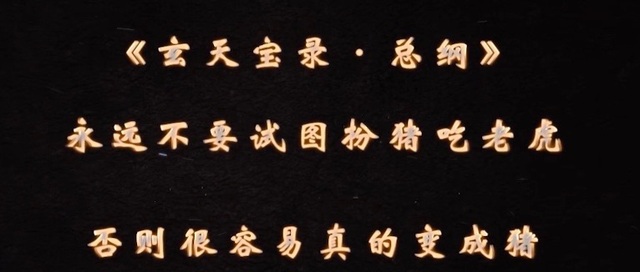 《玄天宝录·总纲》
永远不要试图扮猪吃老虎
否则很容易真的变成猪